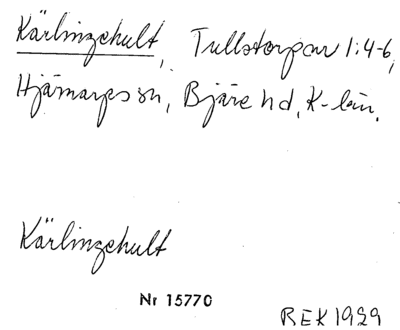 Kärlingehult, Tullstorpar 1:4-6,
Hjärnarps sn, Bjäre hd, K-län.
Kärlingehult
Nr 15770
BEK 1929